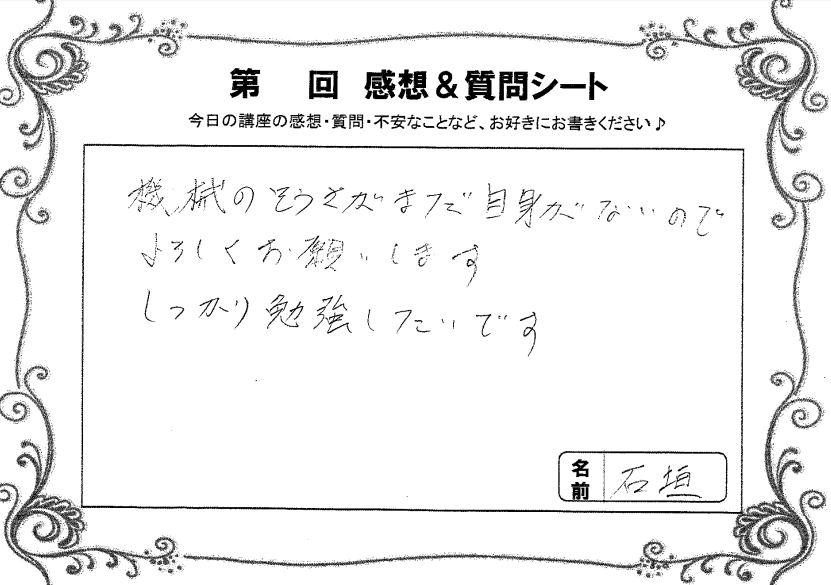 第　回 感想＆質問シート
今日の講座の感想・質問・不安なことなど、お好きにお書きください♪
機械のそうさがまだ自身がないので
よろしくお願いします
しっかり勉強したいです
名前 石垣